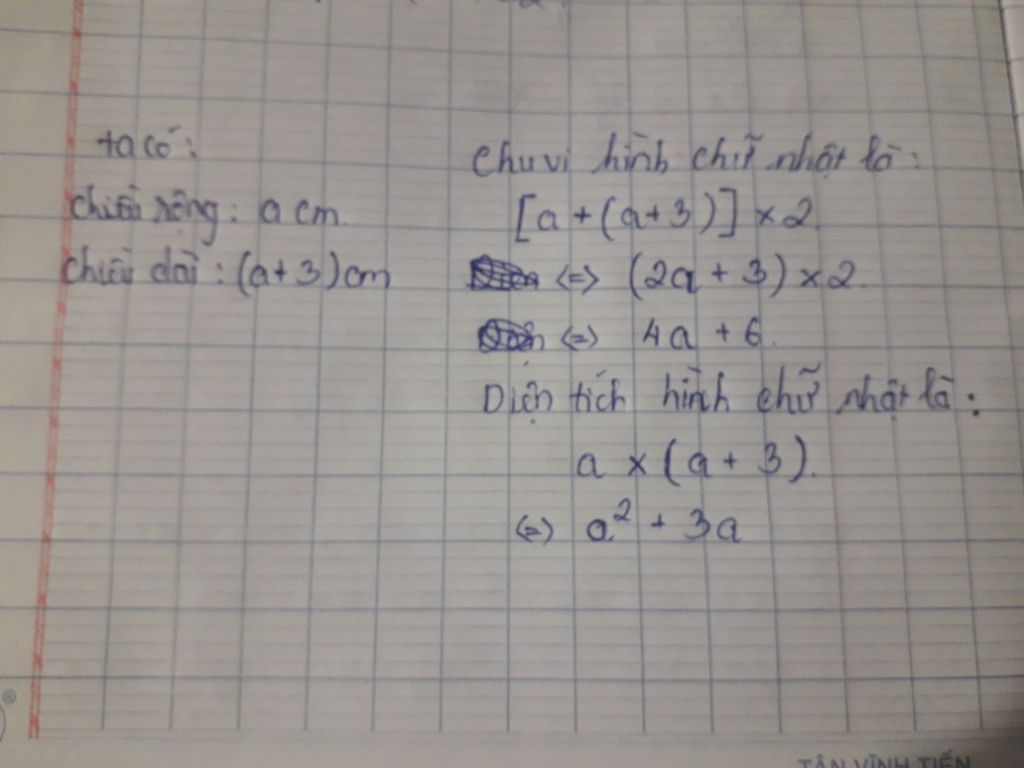 ta có:
chiều rộng: a cm
chiều dài: (a+3)cm
Chu vi hình chữ nhật là:
[a + (a+3)] × 2
<=> (2a + 3) × 2
<=> 4a + 6.
Diện tích hình chữ nhật là:
a × (a + 3).
<=> a² + 3a
®
TÂN VĨNH TIẾN